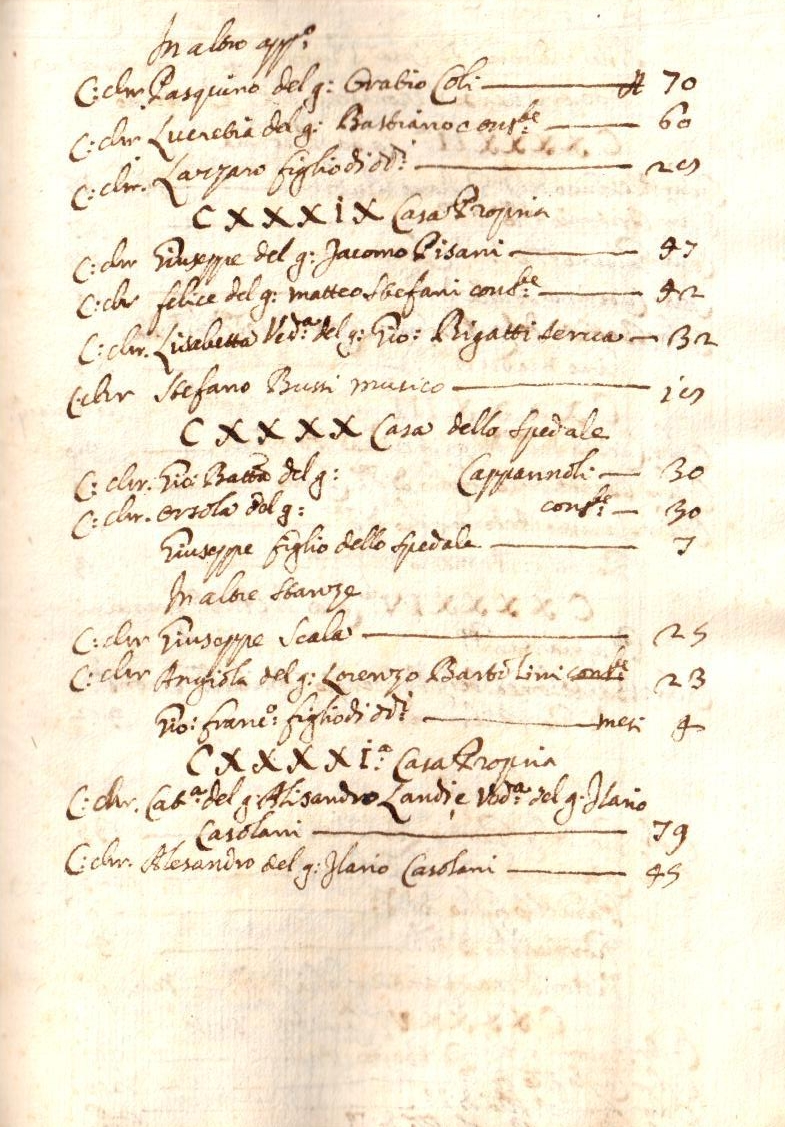 In altro app.º
C: chr. Pasquino del q: Oratio Coli — A 70
C: chr Lucretia del q: Bastiano cons.te — 60
C: chr. Lazzaro figlio di dd.i —
C X X X i X Casa Propria
C: chr Giuseppe del q: Jacomo Pisani — 47
C: chr felice del q: matteo Stefani cons.te — 42
C: chr. Lisabetta Ved.a del q: Gio: Rigatti serva — 32
C: chr Stefano Bussi musico —
C X X X X Casa dello Spedale
C: chr. Gio: Batta del q: Cappannoli — 30
C: chr. Orsola del q: cons.te — 30
Giuseppe figlio dello Spedale — 7
In altre Stanze
C: chr Giuseppe Scala — 25
C: chr Angiola del q: Lorenzo Bartolini cons.te 23
Gio: franc.º: figlio di dd.i — mesi 4
C X X X X i.a Casa Propria
C: chr. Cat.a del q: Alisandro Landi e Ved.a del q: Ilario
Casolani — 79
C: chr. Alesandro del q: Ilario Casolani — 45